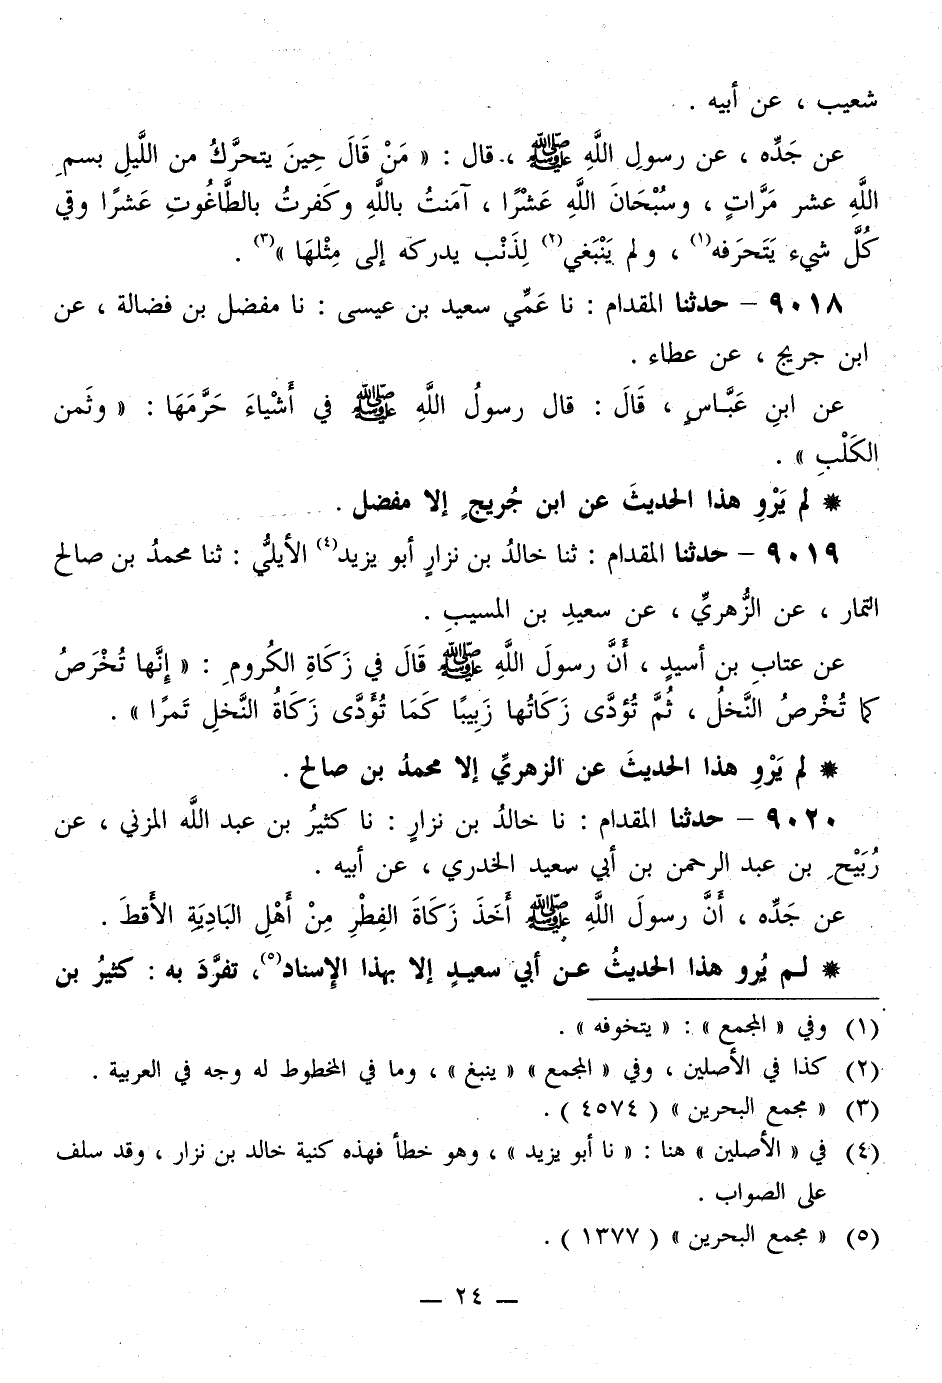 شعيب ، عن أبيه .
عن جَدِّه ، عن رسولِ اللَّهِ ﷺ ، قال : « مَنْ قَالَ حِينَ يتحرَّكُ من الليلِ بسمِ
اللَّهِ عشر مَرَّاتٍ ، وسُبْحَانَ اللَّهِ عَشْرًا ، آمَنتُ باللَّهِ وكَفرتُ بالطَّاغُوتِ عَشرًا وقي
كُلَّ شيء يَتَحرَفه(١) ، ولم يَنْبَغي(٢) لِذَنْب يدركه إلى مِثْلهَا »(٣) .
٩٠١٨ – حدثنا المقدام : نا عَمِّي سعيد بن عيسى : نا مفضل بن فضالة ، عن
ابن جريج ، عن عطاء .
عن ابنِ عَبَّاسٍ ، قَالَ : قال رسولُ اللَّهِ ﷺ في أَشْياءَ حَرَّمَهَا : « وثَمن
الكَلْبِ » .
* لم يَرْوِ هذا الحديثَ عن ابن جُريجٍ إلا مفضل .
٩٠١٩ – حدثنا المقدام : ثنا خالدُ بن نزارٍ أبو يزيد(٤) الأيليُّ : ثنا محمدُ بن صالح
التمار ، عن الزُّهريِّ ، عن سعيدِ بن المسيبِ .
عن عتابِ بن أسيدٍ ، أَنَّ رسولَ اللَّهِ ﷺ قَالَ في زَكَاةِ الكُرومِ : « إِنَّها تُخْرَصُ
كما تُخْرصُ النَّخلُ ، ثُمَّ تُؤدَّى زَكَاتُها زَبِيبًا كَمَا تُؤَدَّى زَكَاةُ النَّخلِ تَمرًا » .
* لم يَرْوِ هذا الحديثَ عن الزهريِّ إلا محمدُ بن صالح .
٩٠٢٠ – حدثنا المقدام : نا خالدُ بن نزارٍ : نا كثيرُ بن عبد اللَّه المزني ، عن
رُبَيْحِ بن عبد الرحمن بن أبي سعيد الخدري ، عن أبيه .
عن جَدِّه ، أَنَّ رسولَ اللَّهِ ﷺ أَخَذَ زَكَاةَ الفِطْرِ مِنْ أَهْلِ البَادِيَةِ الأَقطَ .
* لـم يُرو هذا الحديثُ عـن أبي سعيـدٍ إلا بهذا الإِسناد(٥)، تفرَّدَ به : كثيرُ بن
(١) وفي « المجمع » : « يتخوفه » .
(٢) كذا في الأصلين ، وفي « المجمع » « ينبغ » ، وما في المخطوط له وجه في العربية .
(٣) « مجمع البحرين » ( ٤٥٧٤ ) .
(٤) في « الأصلين » هنا : « نا أبو يزيد » ، وهو خطأ فهذه كنية خالد بن نزار ، وقد سلف
على الصواب .
(٥) « مجمع البحرين » ( ١٣٧٧ ) .
– ٢٤ –